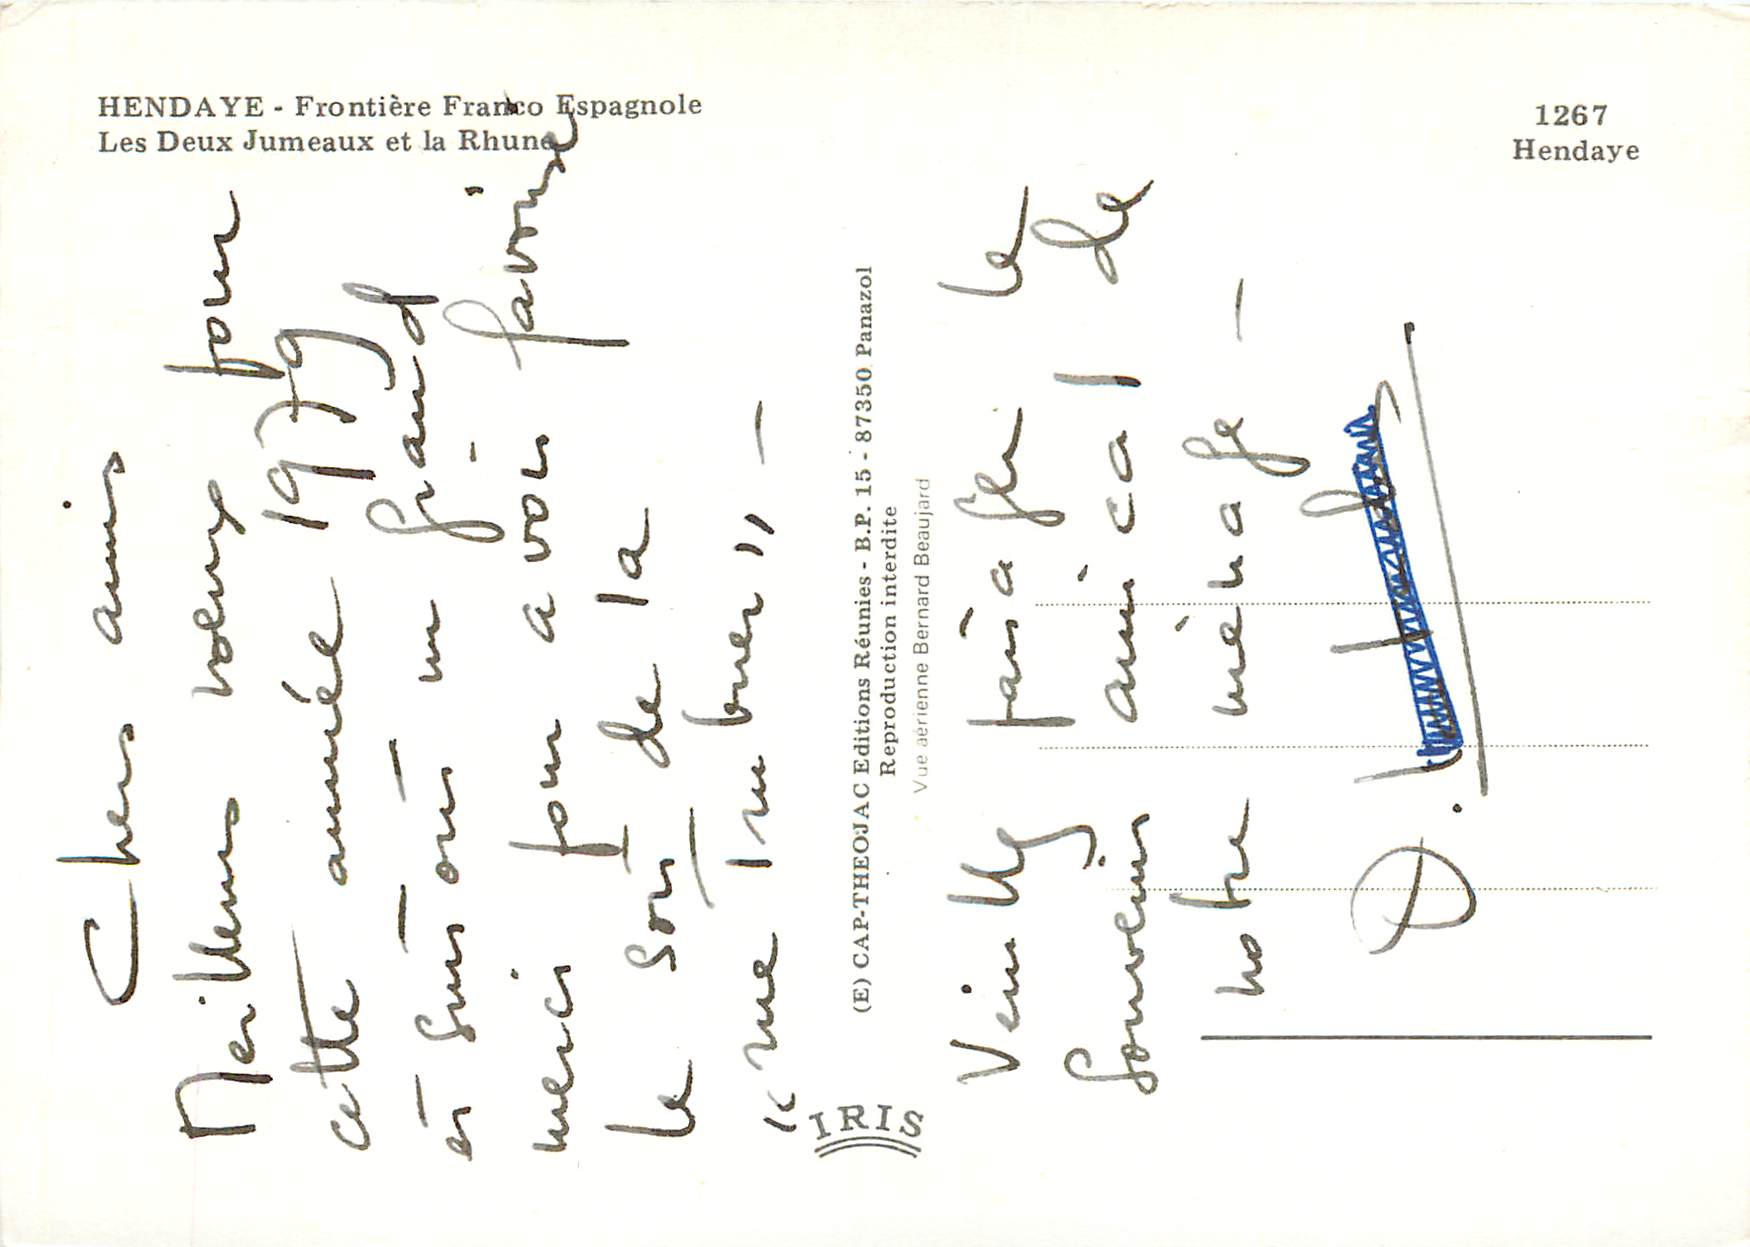 HENDAYE - Frontière Franco Espagnole
Les Deux Jumeaux et la Rhune
1267
Hendaye
Chers amis
Meilleurs voeux pour
cette année 1979
et surtout un grand
merci pour avoir favorisé
le sort de la
"me mer" -
(E) CAP-THEOJAC Editions Réunies - B.P. 15 - 87350 Panazol
Reproduction interdite
Vue aérienne Bernard Beaujard
IRIS
Veuillez partager le
souvenir amical de
notre ménage -
D.